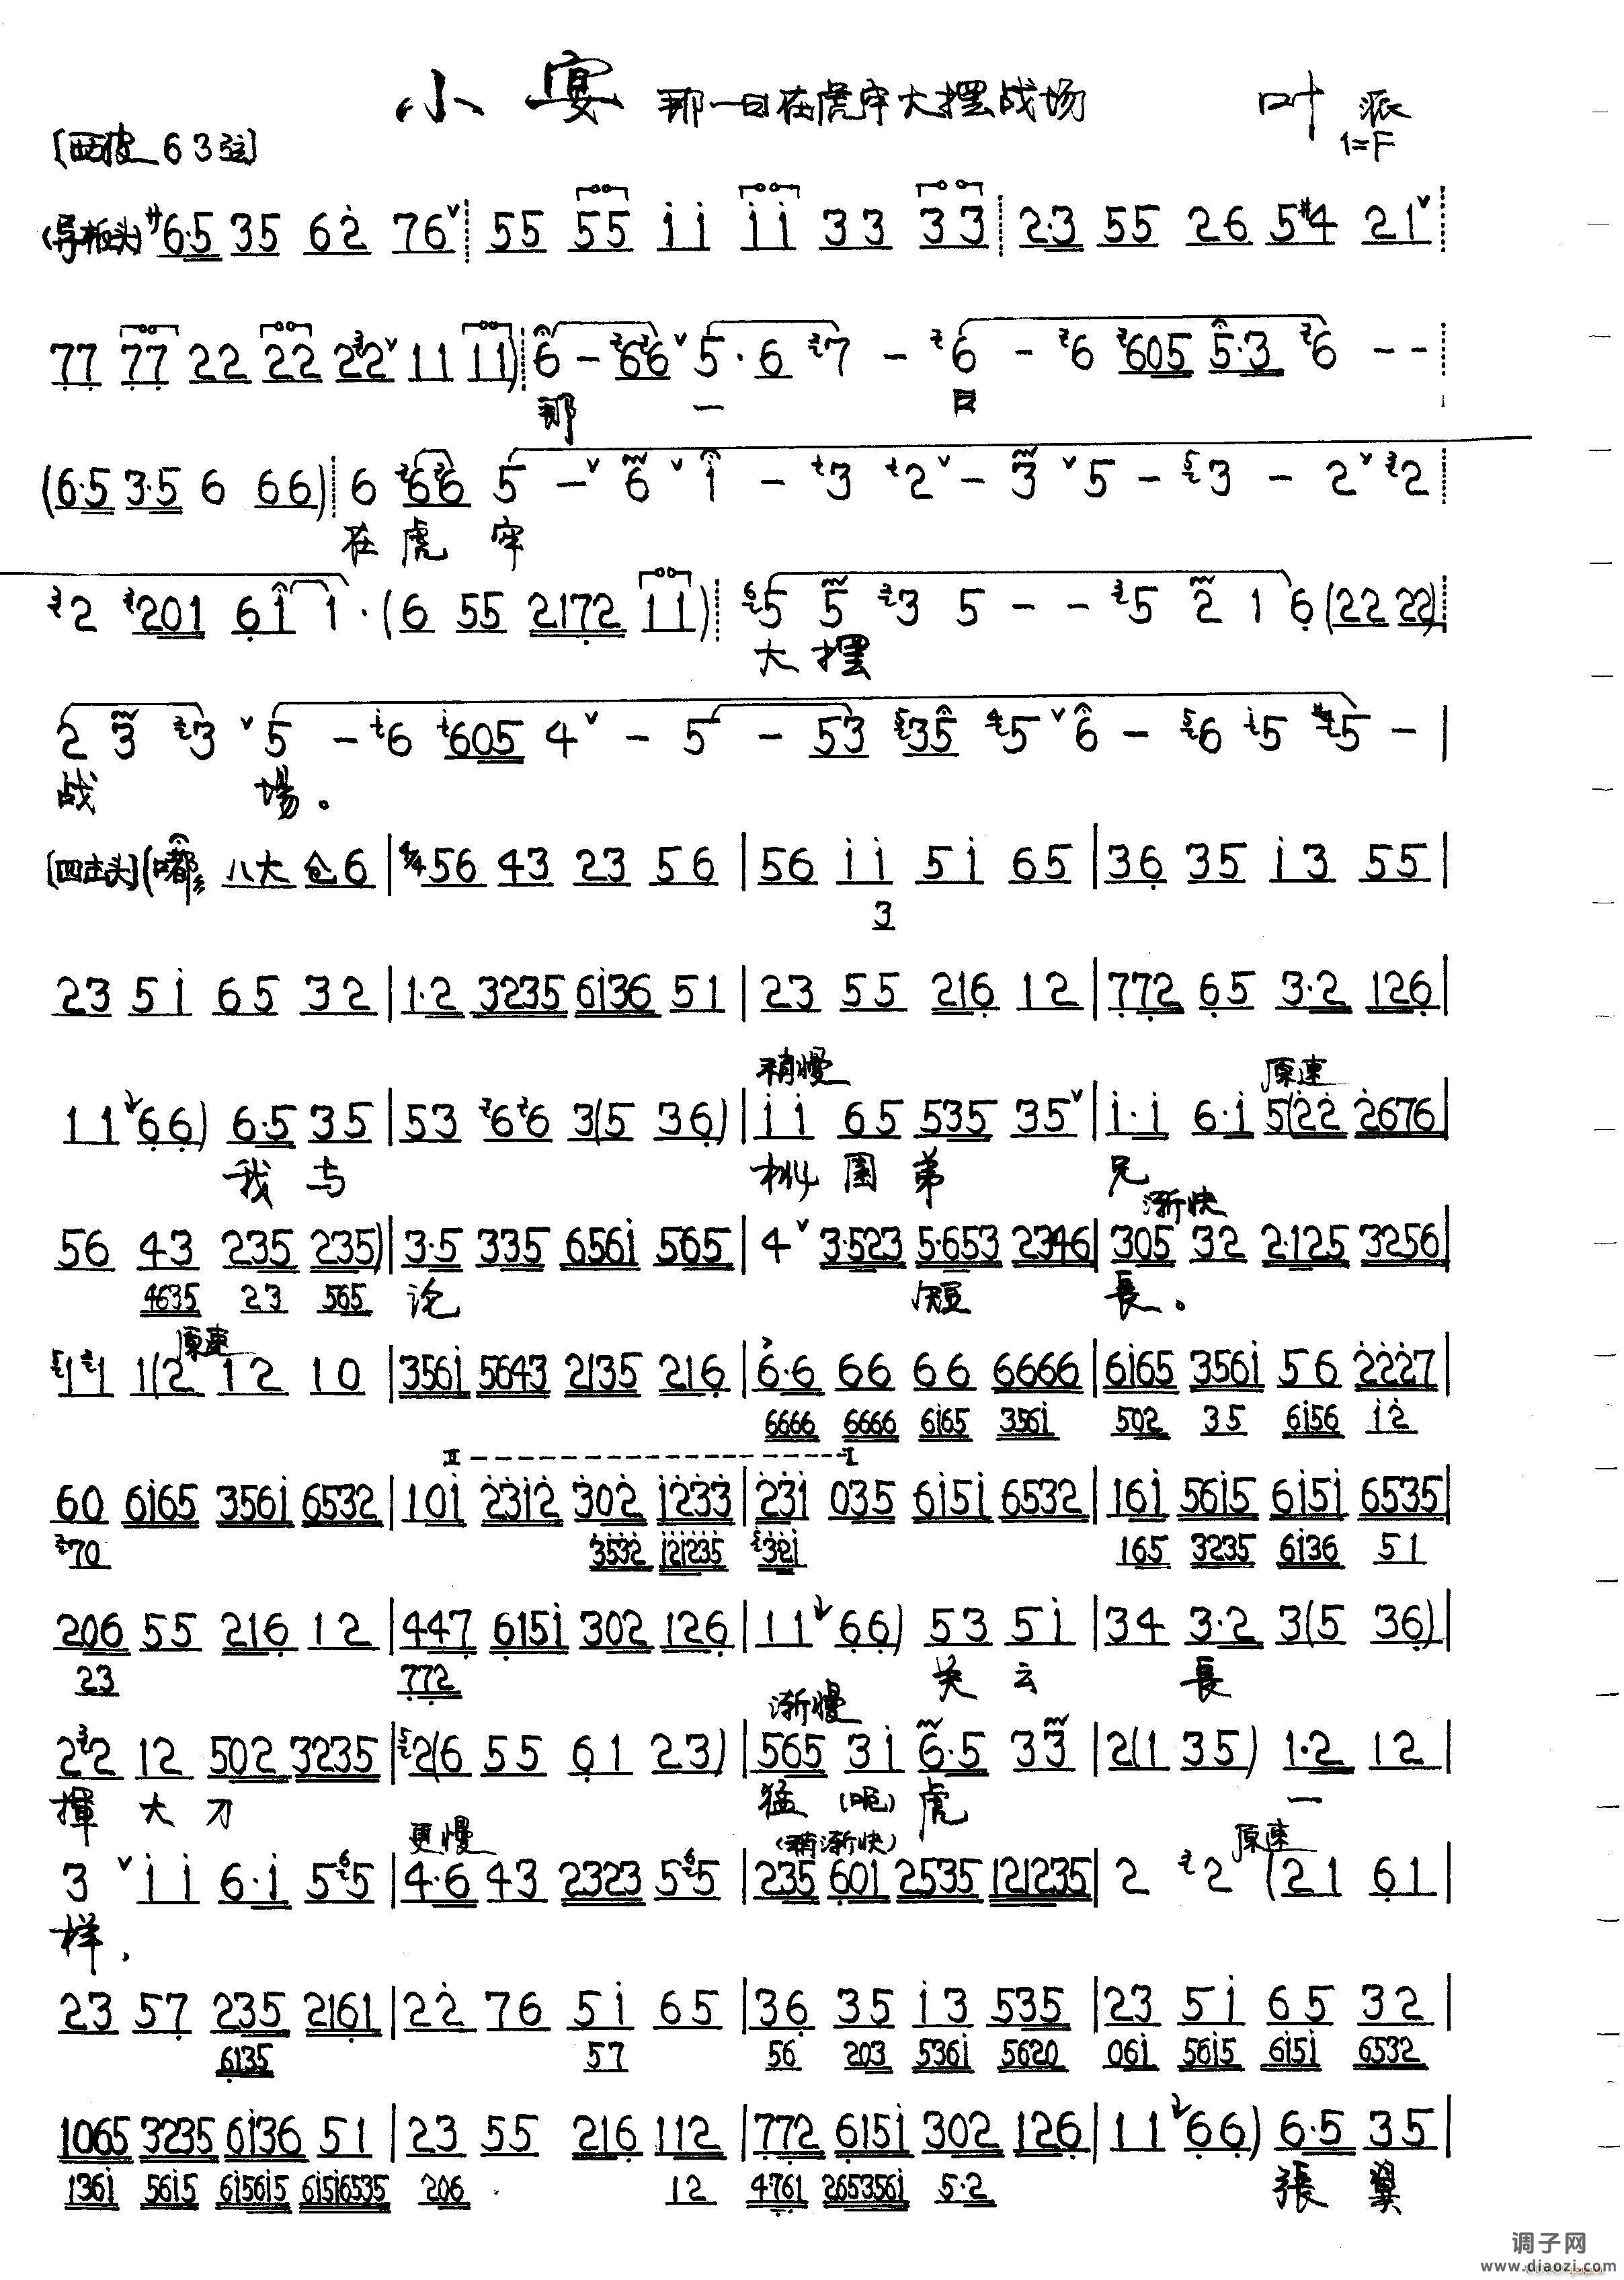 小宴 那一日在虎牢大摆战场 叶派
[西皮 63弦] 1=F
(导板头) 6·5 35 62 76 55 55 11 11 33 33 2·3 55 26 5#4 21
77 77 22 22 22 11 11) 6 - 66 5·6 7 - 6 - 6 605 5·3 6 - -
那 一 日
(6·5 3·5 6 66) 6 66 5 - 6 1 - 3 2 - 3 5 - 3 - 2 2
在 虎 牢
2 201 61 1·(6 55 2172 11) 5 5 3 5 - - 5 2 1 6 (22 22)
大 摆
2 3 3 5 - 6 605 4 - 5 - 53 35 5 6 - 6 5 5 -
战 場。
[四击头] (嘟 八大 仓6 | 4/4 56 43 23 56 | 56 11 51 65 | 36 35 13 55 |
3
23 51 65 32 | 1·2 3235 6136 51 | 23 55 216 12 | 772 65 3·2 126 |
稍慢 原速
11 66) 6·5 35 | 53 66 3(5 36) | 11 65 535 35 | 1·1 6·1 5(22 2676 |
我 与 桃 園 弟 兄
渐快
56 43 235 235) | 3·5 335 6561 565 | 4 3·523 5·653 2346 | 305 32 2·125 3256 |
4635 23 565 论 短 長。
原速
11 1(2 12 10 | 3561 5643 2135 216 | 6·6 66 66 6666 | 6165 3561 56 2227 |
6666 6666 6165 3561 502 35 6156 12
II I
60 6165 3561 6532 | 101 2312 302 1233 | 231 035 6151 6532 | 161 5615 6151 6535 |
70 3532 121235 321 165 3235 6136 51
206 55 216 12 | 447 6151 302 126 | 11 66) 53 51 | 34 3·2 3(5 36) |
23 772 关 云 長
渐慢
22 12 502 3235 | 2(6 55 61 23) | 565 31 6·5 33 | 2(1 35) 1·2 12 |
揮 大 刀 猛 (呃) 虎 一
更慢 (稍渐快) 原速
3 11 6·1 55 | 4·6 43 2323 55 | 235 601 2535 121235 | 2 2 (21 61 |
样,
23 57 235 2161 | 22 76 51 65 | 36 35 13 535 | 23 51 65 32 |
6135 57 56 203 5361 5620 061 5615 6151 6532
1065 3235 6136 51 | 23 55 216 112 | 772 6151 302 126 | 11 66) 6·5 35 |
1361 5615 615615 61516535 206 12 4761 2653561 5·2 張 翼
调子网
www.diaozi.com